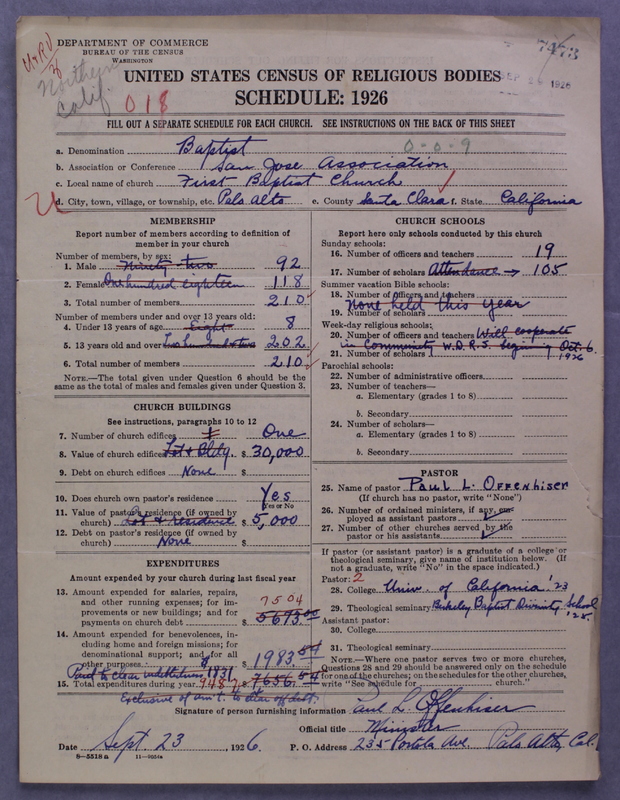 DEPARTMENT OF COMMERCE
BUREAU OF THE CENSUS
WASHINGTON
Northern
Calif.
018
7473
1926
UNITED STATES CENSUS OF RELIGIOUS BODIES
SCHEDULE: 1926
FILL OUT A SEPARATE SCHEDULE FOR EACH CHURCH. SEE INSTRUCTIONS ON THE BACK OF THIS SHEET
a. Denomination Baptist 0-0-9
b. Association or Conference San Jose Association
c. Local name of church First Baptist Church
d. City, town, village, or township, etc. Palo Alto e. County Santa Clara f. State California
MEMBERSHIP
Report number of members according to definition of
member in your church
Number of members, by sex:
1. Male Ninety-two 92
2. Female One hundred eighteen 118
3. Total number of members 210
Number of members under and over 13 years old:
4. Under 13 years of age Eight 8
5. 13 years old and over 202
6. Total number of members 210
NOTE.—The total given under Question 6 should be the
same as the total of males and females given under Question 3.
CHURCH BUILDINGS
See instructions, paragraphs 10 to 12
7. Number of church edifices 1 One
8. Value of church edifices Lot & Bldg. $ 30,000
9. Debt on church edifices None $
10. Does church own pastor's residence Yes
Yes or No
11. Value of pastor's residence (if owned by
church) Lot & residence $ 5,000
12. Debt on pastor's residence (if owned by
church) None $
EXPENDITURES
Amount expended by your church during last fiscal year
13. Amount expended for salaries, repairs,
and other running expenses; for im-
provements or new buildings; and for
payments on church debt $ 7504 5673.00
14. Amount expended for benevolences, in-
cluding home and foreign missions; for
denominational support; and for all
other purposes $ 1983.54
Paid to clear indebtedness 1831
15. Total expenditures during year 9487 $ 7656.54
Exclusive of am't. to clear off debt.
CHURCH SCHOOLS
Report here only schools conducted by this church
Sunday schools:
16. Number of officers and teachers 19
17. Number of scholars Attendance → 105
Summer vacation Bible schools:
18. Number of officers and teachers
None held this year
19. Number of scholars
Week-day religious schools:
20. Number of officers and teachers Will cooperate
in Community W.D.R.S. beginning Oct. 6.
21. Number of scholars 1926
Parochial schools:
22. Number of administrative officers
23. Number of teachers—
a. Elementary (grades 1 to 8)
b. Secondary
24. Number of scholars—
a. Elementary (grades 1 to 8)
b. Secondary
PASTOR
25. Name of pastor Paul L. Offenhiser
(If church has no pastor, write "None")
26. Number of ordained ministers, if any, em-
ployed as assistant pastors
27. Number of other churches served by the
pastor or his assistants
If pastor (or assistant pastor) is a graduate of a college or
theological seminary, give name of institution below. (If
not a graduate, write "No" in the space indicated.)
Pastor: 2
28. College Univ. of California '23
29. Theological seminary Berkeley Baptist Divinity School
'25.
Assistant pastor:
30. College
31. Theological seminary
NOTE.—Where one pastor serves two or more churches,
Questions 28 and 29 should be answered only on the schedule
for one of the churches; on the schedules for the other churches,
write "See schedule for church."
Signature of person furnishing information Paul L. Offenhiser
Official title Minister
Date Sept. 23, 1926. P. O. Address 235 Portola Ave. Palo Alto, Cal.
8—5518 a 11—8054a